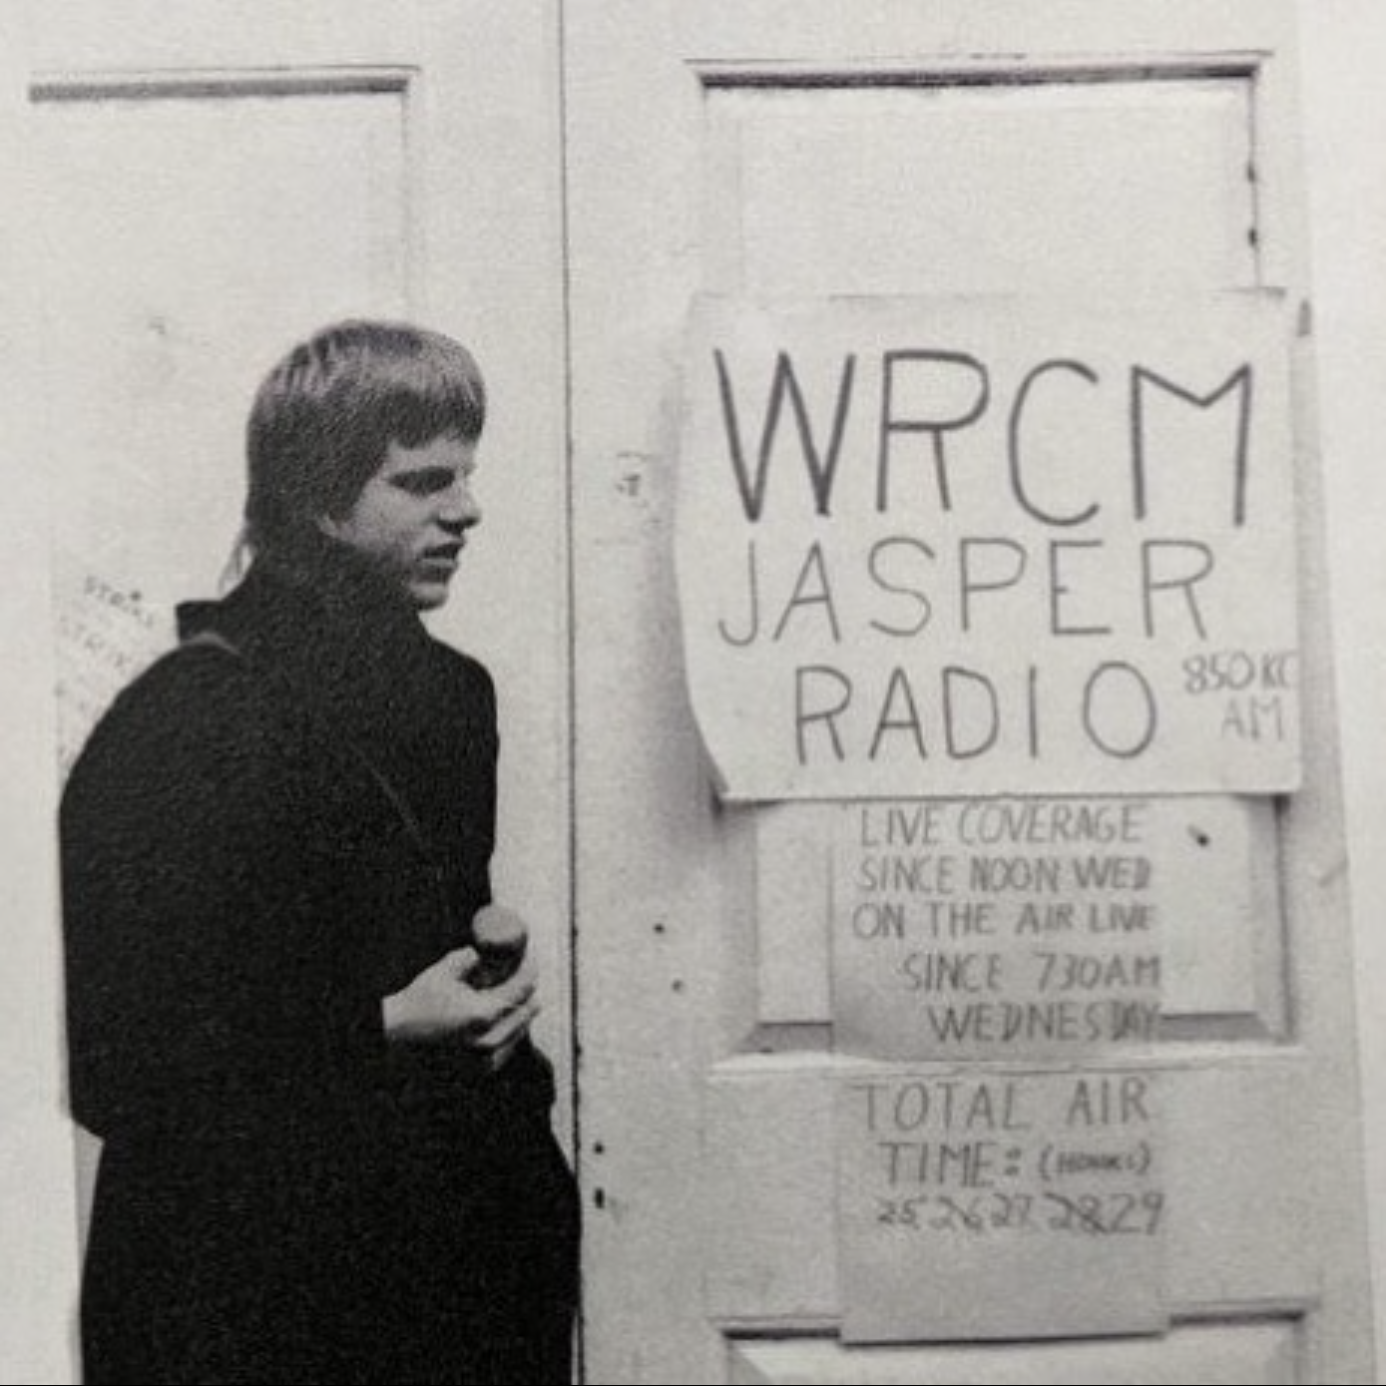 WRCM
JASPER
RADIO
850 KC
AM
LIVE COVERAGE
SINCE NOON WED
ON THE AIR LIVE
SINCE 730AM
WEDNESDAY
TOTAL AIR
TIME: (HOURS)
25 26 27 28 29